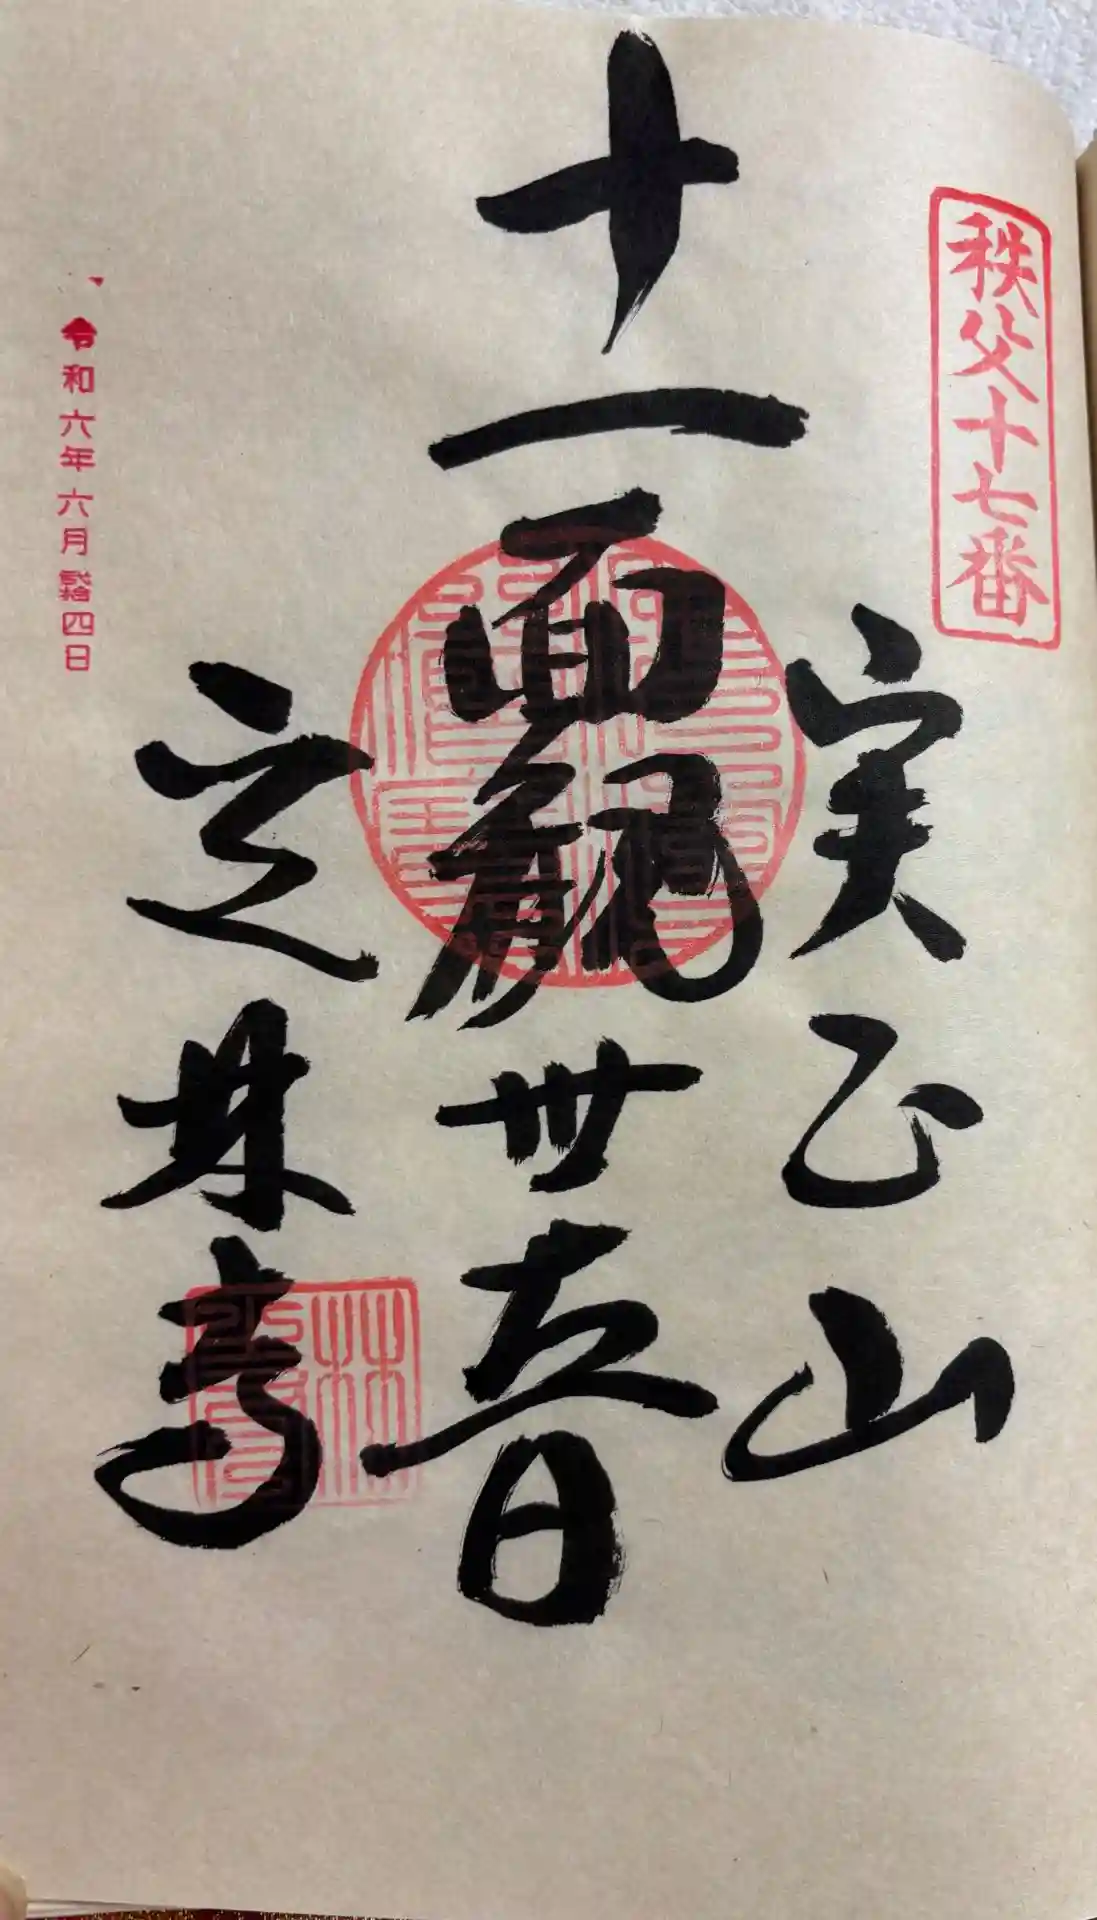 秩父十七番
実正山
十一面観世音
定林寺
令和六年六月拾四日